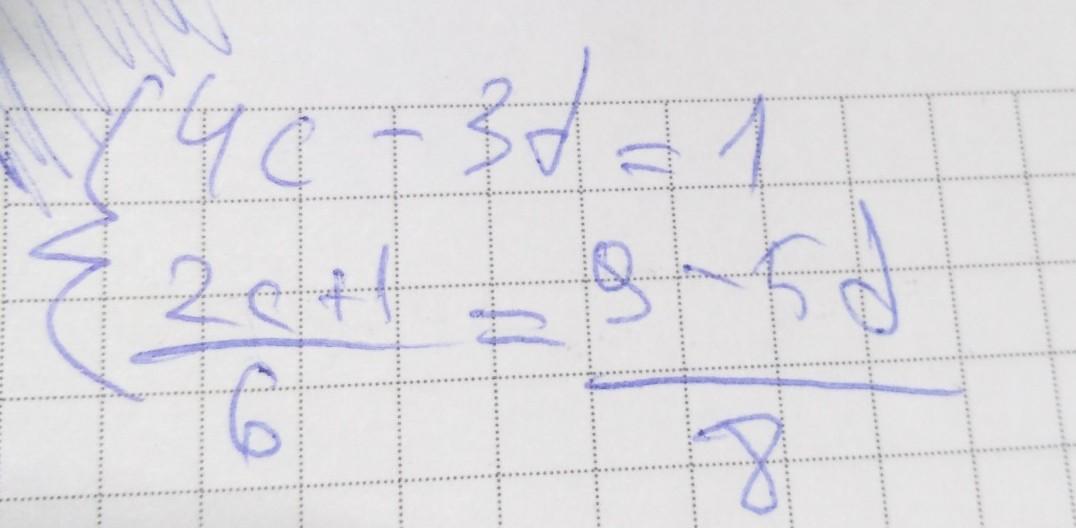 4c - 3d = 1
2c+1 = 9-5d
6 8